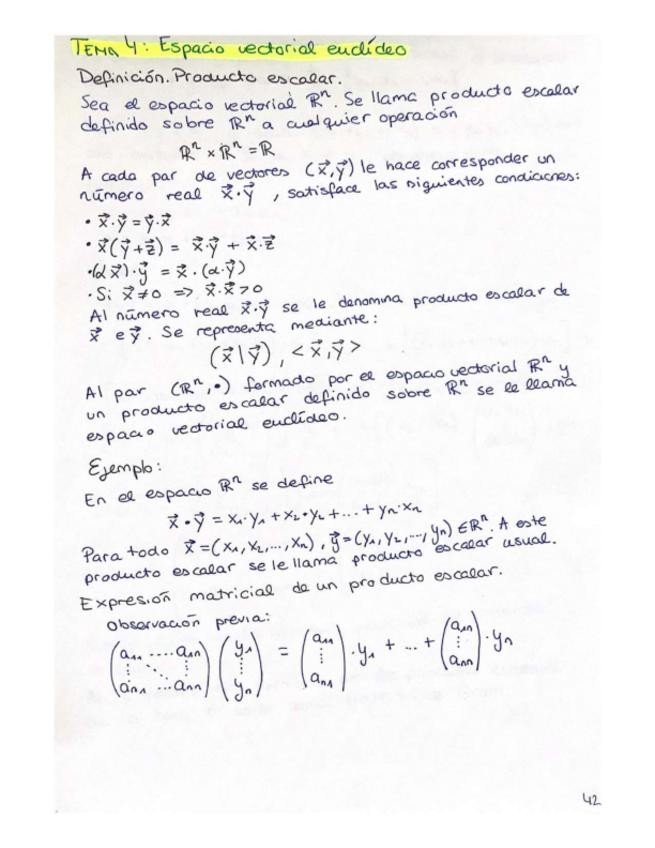 TEMA 4: Espacio vectorial euclídeo
Definición. Producto escalar.
Sea el espacio vectorial ℝⁿ. Se llama producto escalar
definido sobre ℝⁿ a cualquier operación
ℝⁿ × ℝⁿ = ℝ
A cada par de vectores (x⃗,y⃗) le hace corresponder un
número real x⃗·y⃗, satisface las siguientes condiciones:
· x⃗·y⃗ = y⃗·x⃗
· x⃗(y⃗+z⃗) = x⃗·y⃗ + x⃗·z⃗
·(αx⃗)·y⃗ = x⃗·(α·y⃗)
· Si x⃗≠0 => x⃗·x⃗>0
Al número real x⃗·y⃗ se le denomina producto escalar de
x⃗ e y⃗. Se representa mediante:
(x⃗|y⃗), <x⃗,y⃗>
Al par (ℝⁿ,•) formado por el espacio vectorial ℝⁿ y
un producto escalar definido sobre ℝⁿ se le llama
espacio vectorial euclídeo.
Ejemplo:
En el espacio ℝⁿ se define
x⃗·y⃗ = x₁·y₁+x₂·y₂+...+yₙ·xₙ
Para todo x⃗=(x₁,x₂,...,xₙ), y⃗=(y₁,y₂,...,yₙ) ∈ℝⁿ. A este
producto escalar se le llama producto escalar usual.
Expresión matricial de un producto escalar.
Observación previa:
(a₁₁ ..... a₁ₙ) (y₁) = (a₁₁) ·y₁ + ... + (a₁ₙ) ·yₙ
(⋮ ⋱ ⋮) (⋮) (⋮) (⋮)
(aₙ₁ ... aₙₙ) (yₙ) (aₙ₁) (aₙₙ)
42